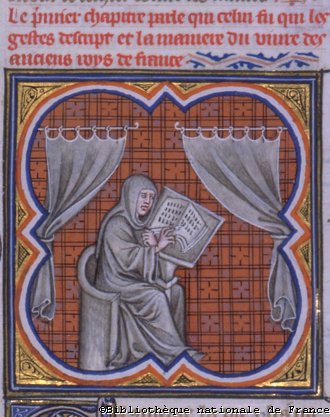 Le premier chapitre parle qui celui fu qui les
gestes descript et la maniere du viure des
anciens roys de france
©Bibliothèque nationale de France